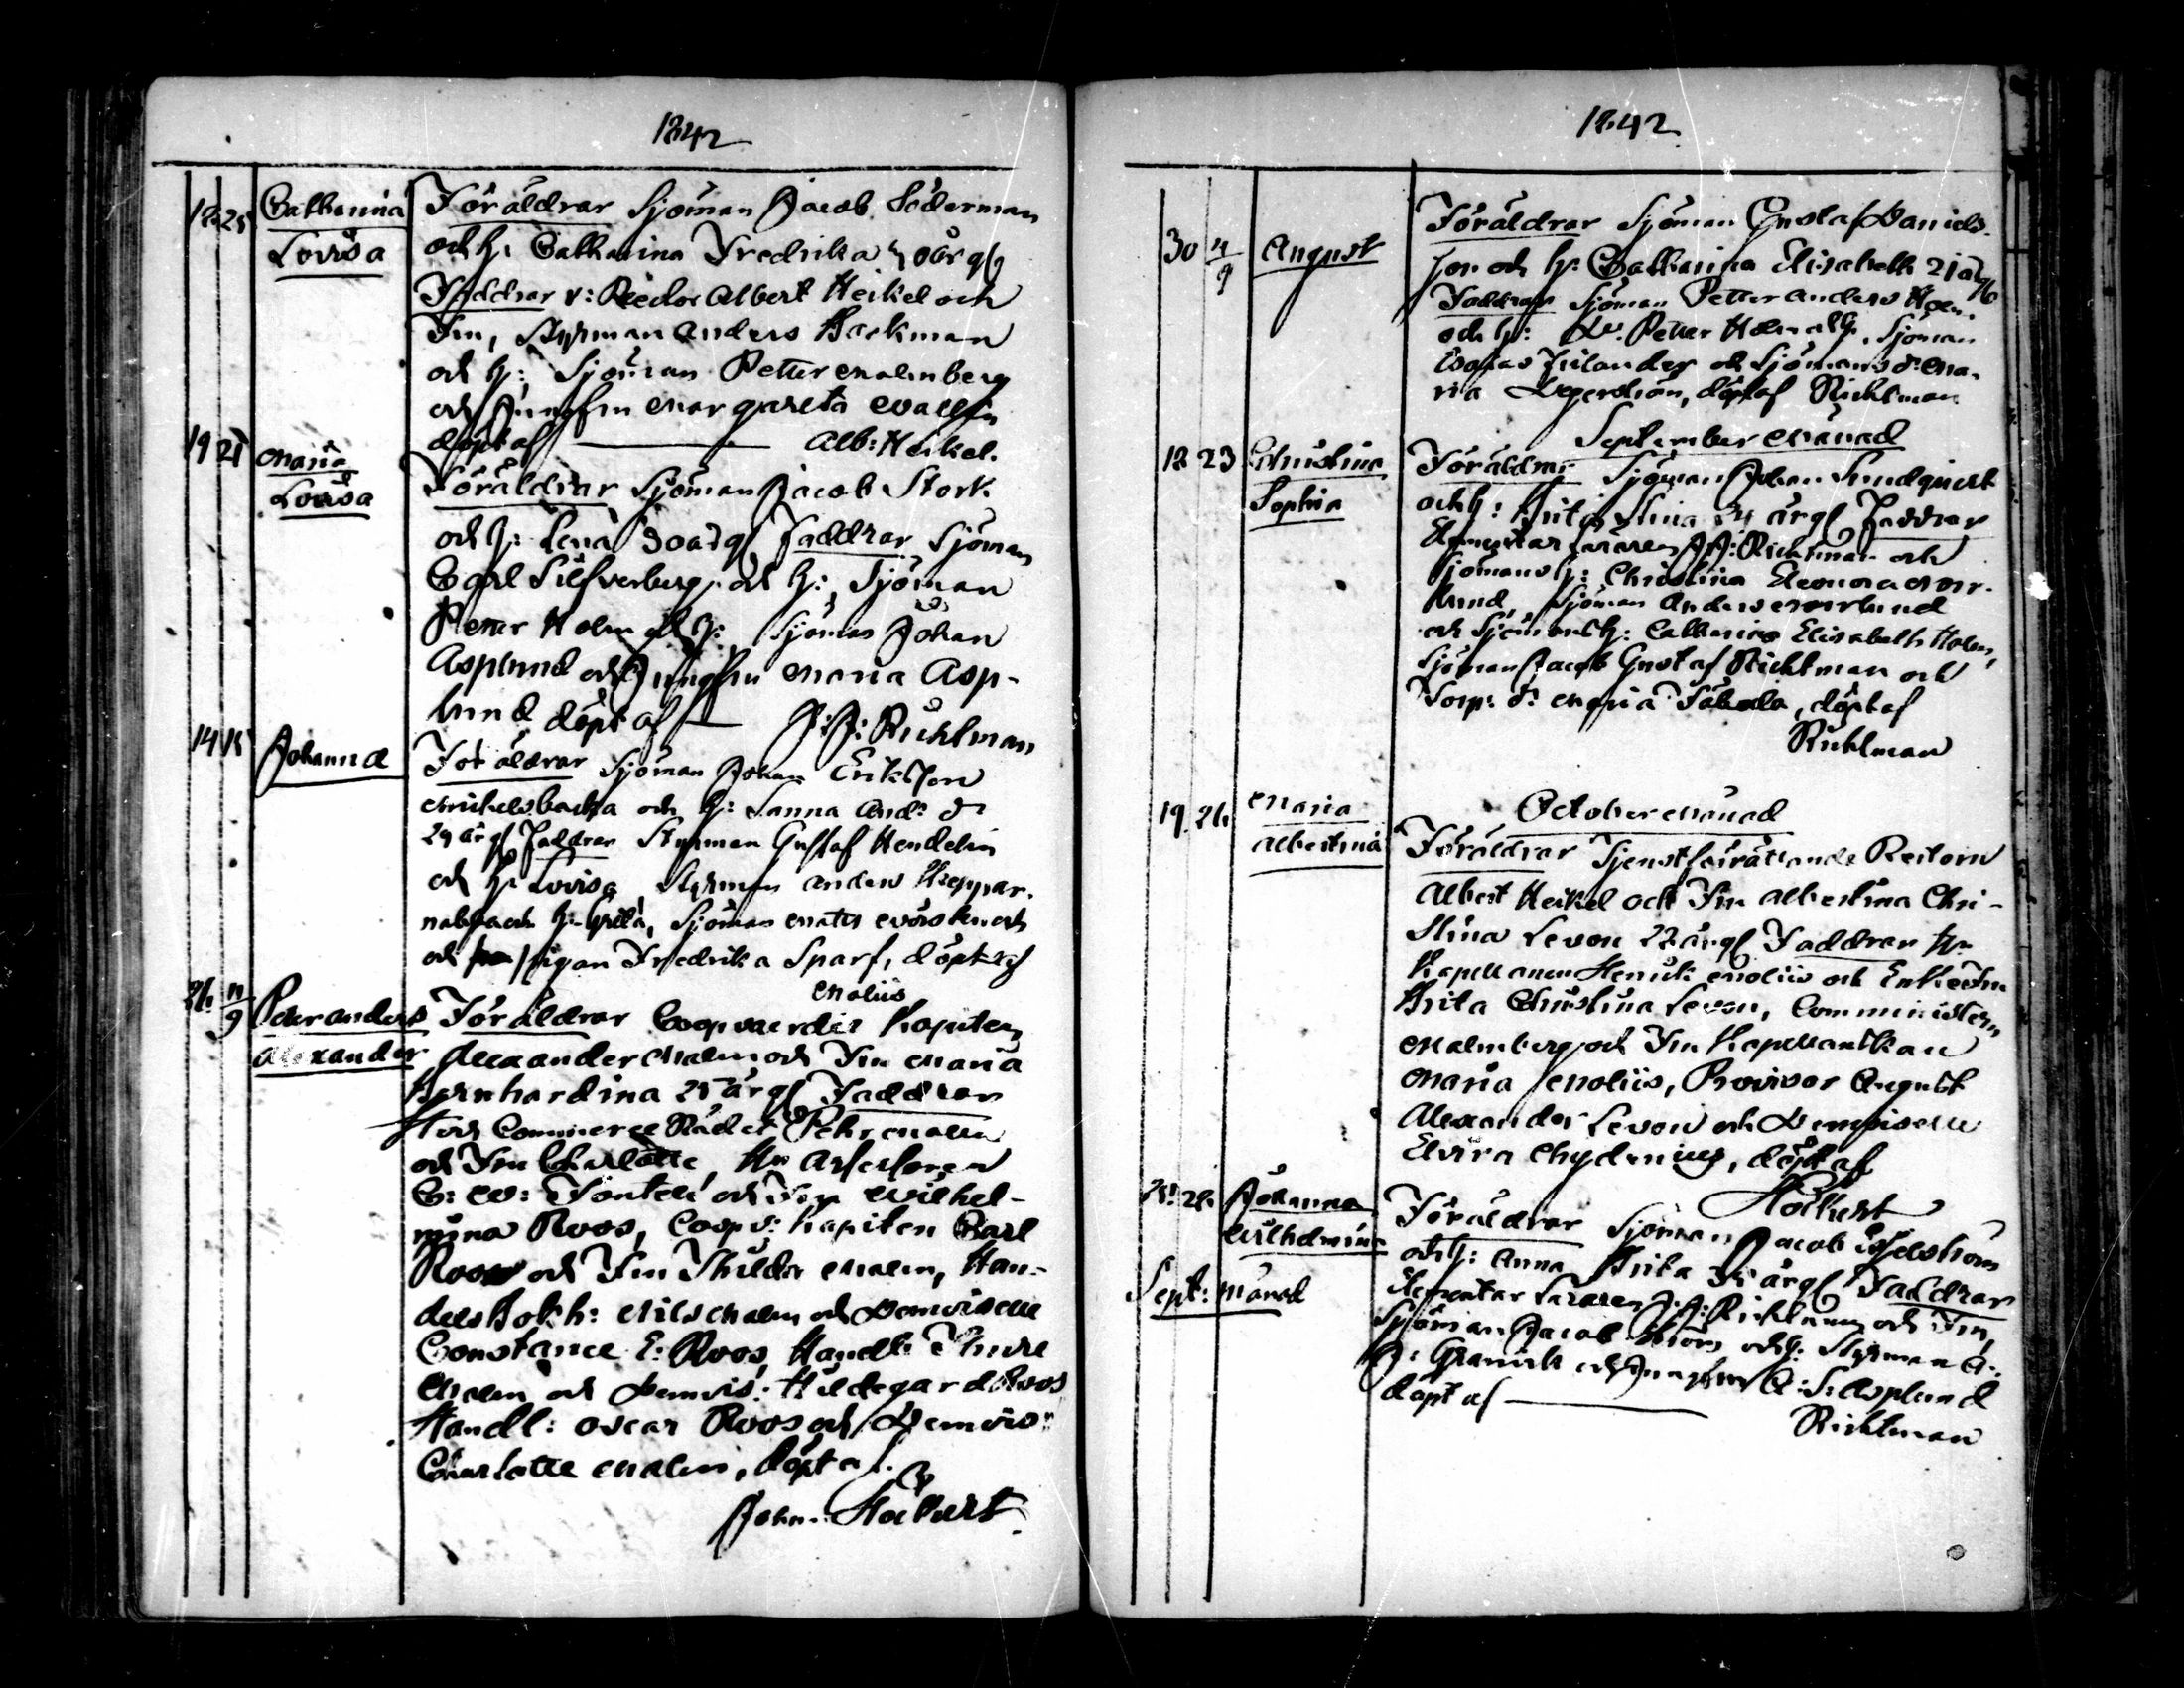 1842
18 25 Catharina Lovisa Föräldrar Sjöman Jacob Söderman
och h: Catharina Fredrika 40 årgl
Faddrar v: Rector Albert Heikel och
Fru, Styrman Anders Backman
och h:, Sjöman Petter Malmberg
och Jungfru Margareta
döpt af Alb: Heikel.
19 21 Maria Lovisa Föräldrar Sjöman Jacob Stork
och h: Lena 30 årgl Faddrar Sjöman
Carl Silfverberg och h:, Sjöman
Petter Holm och h: Sjöman Johan
Asplund och Jungfru Maria Asp-
lund döpt af J: J: Richtman
14 15 Johanna Föräldrar Sjöman Johan Eriksson
Mickelsbacka och h: Sanna And: dr
29 årgl Faddrar Styrman Gustaf Hendelin
och h: Lovisa, Styrman Anders
och h: Greta, Sjöman Mats
och pigan Fredrika Sparf, döpt af
Moliis
26 11/9 Peter Anders Alexander Föräldrar Coopvaerdie Kapiten
Alexander Malm och Fru Maria
Bernhardina 25 årgl Faddrar
Herr Commerce Rådet Pehr Malm
och Fru Charlotte, Hr Assessoren
C: W: Fontell och Fru Wilhel-
mina Roos, Coopv: Kapiten Carl
Roos och Fru Thilda Malm, Han-
dels Bokh: Nils Malm och Demoiselle
Constance E: Roos, Handl: Thure
Malm och Demois: Hildegard Roos
Handl: Oscar Roos och Demois:
Charlotte Malm, döpt af
John Hockert
1842
30 4/9 August Föräldrar Sjöman Gustaf Daniels-
son och h: Catharina Elisabeth 21 årgl
Faddrar Sjöman Petter Anders Holm
och h: Petter Holm och h, Sjöman
Esaias Julander och Sjömans d: Ma-
ria Segerstrøm, döpt af Richtman
September Månad
18 23 Christina Sophia Föräldrar Sjöman Johan Sundqvist
och h: Brita Stina 34 årgl Faddrar
Elementar läraren J: J: Richtman och
Sjömans h: Christina Eleonora Norr-
lund, Sjöman Anders Norrlund
och Sjömans h: Catharina Elisabeth Holm,
Sjöman Jacob Gustaf Richtman och
Torp: d: Maria, döpt af
Richtman
October Månad
19 26 Maria Albertina Föräldrar Tjenstförrättande Rectorn
Albert Heikel och Fru Albertina Chri-
stina Levon 22 årgl Faddrar Hr
Kapellanen Henrik Molüs och Enkefru
Brita Christina Levon, Comministern
Malmberg och Fru Kapellanskan
Maria Molüs, Provisor August
Alexander Levon och Demoiselle
Elvira Chydenius, döpt af
Hockert
25 26 Johanna Wilhelmina Föräldrar Sjöman Jacob
Sept: månad och h: Anna Brita 35 årgl Faddrar
Elementar läraren J: J: Richtman och Fru,
Sjöman Jacob och h: Styrman C:
J: Granvik och Jungfrun C: S: Asplund
döpt af
Richtman